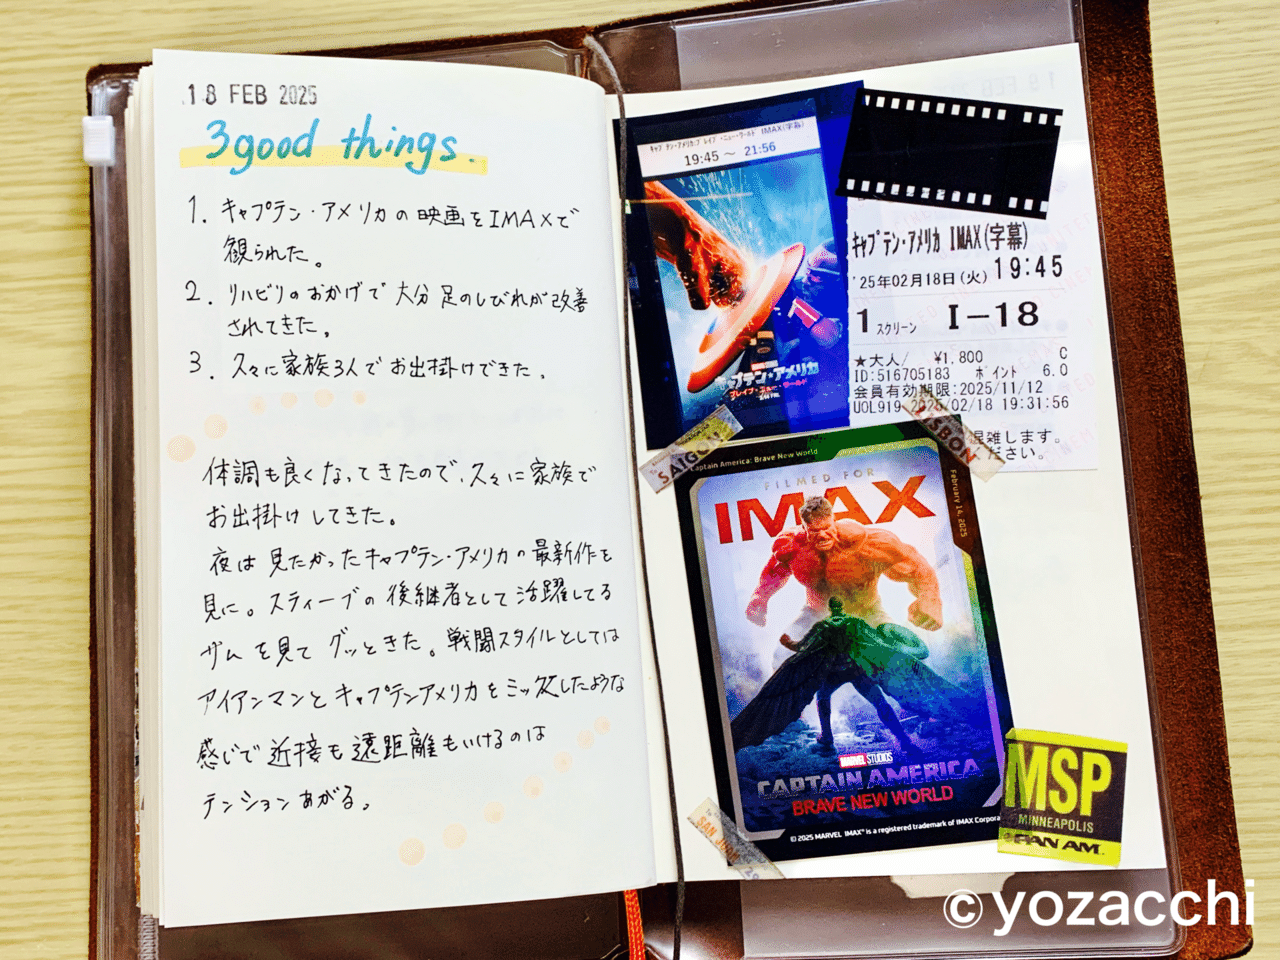 18 FEB 2025
3good things.
1. キャプテン・アメリカの映画をIMAXで
観られた。
2. リハビリのおかげで大分足のしびれが改善
されてきた。
3. 久々に家族3人でお出掛けできた.
体調も良くなってきたので、久々に家族で
お出掛けしてきた。
夜は見たかったキャプテン・アメリカの最新作を
見に。スティーブの後継者として活躍してる
サムを見てグッときた。戦闘スタイルとしては
アイアンマンとキャプテンアメリカをミックスしたような
感じで近接も遠距離もいけるのは
テンションあがる。
キャプテン・アメリカ:ブレイブ・ニュー・ワールド IMAX(字幕)
19:45 ～ 21:56
キャプテン・アメリカ
ブレイブ・ニュー・ワールド
キャプテン・アメリカ IMAX(字幕)
'25年02月18日(火) 19:45
1 スクリーン I-18
★大人/ ¥1,800 C
ID:516705183 ポイント 6.0
会員有効期限:2025/11/12
UOL919 2025/02/18 19:31:56
混雑します。
ださい。
SAIGON
LISBON
Captain America: Brave New World
February 14, 2025
FILMED FOR
IMAX
MARVEL STUDIOS
CAPTAIN AMERICA
BRAVE NEW WORLD
© 2025 MARVEL IMAX® is a registered trademark of IMAX Corpora
SAN JUAN
MSP
MINNEAPOLIS
PAN AM
©yozacchi